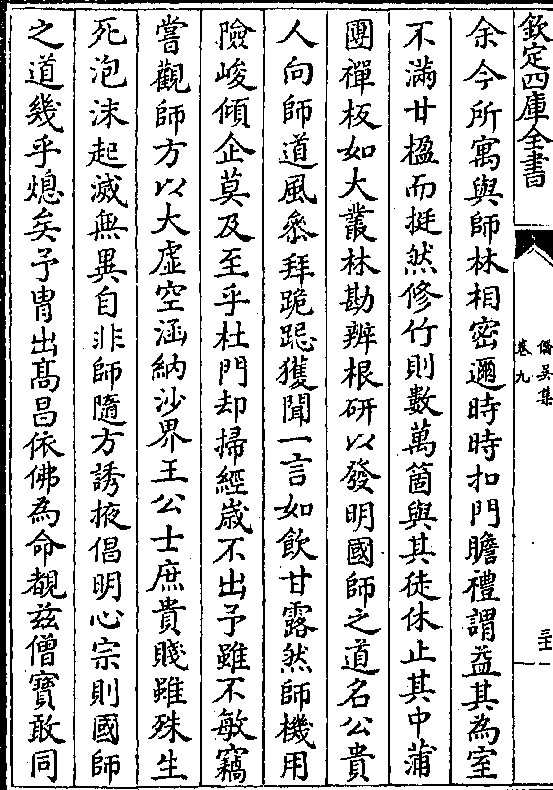 欽定四庫全書
僑吳集
卷九
二十
余今所寓與師林相密邇時時扣門瞻禮謂益其為室
不滿廿楹而挺然修竹則數萬箇與其徒休止其中蒲
團禪板如大叢林勘辨根研以發明國師之道名公貴
人向師道風叅拜跪跽獲聞一言如飲甘露然師機用
險峻傾企莫及至乎杜門却掃經歲不出予雖不敏竊
嘗觀師方以大虛空涵納沙界王公士庶貴賤雖殊生
死泡沫起滅無異自非師隨方誘掖倡明心宗則國師
之道幾乎熄矣予胄出髙昌依佛為命覩兹僧寶敢同